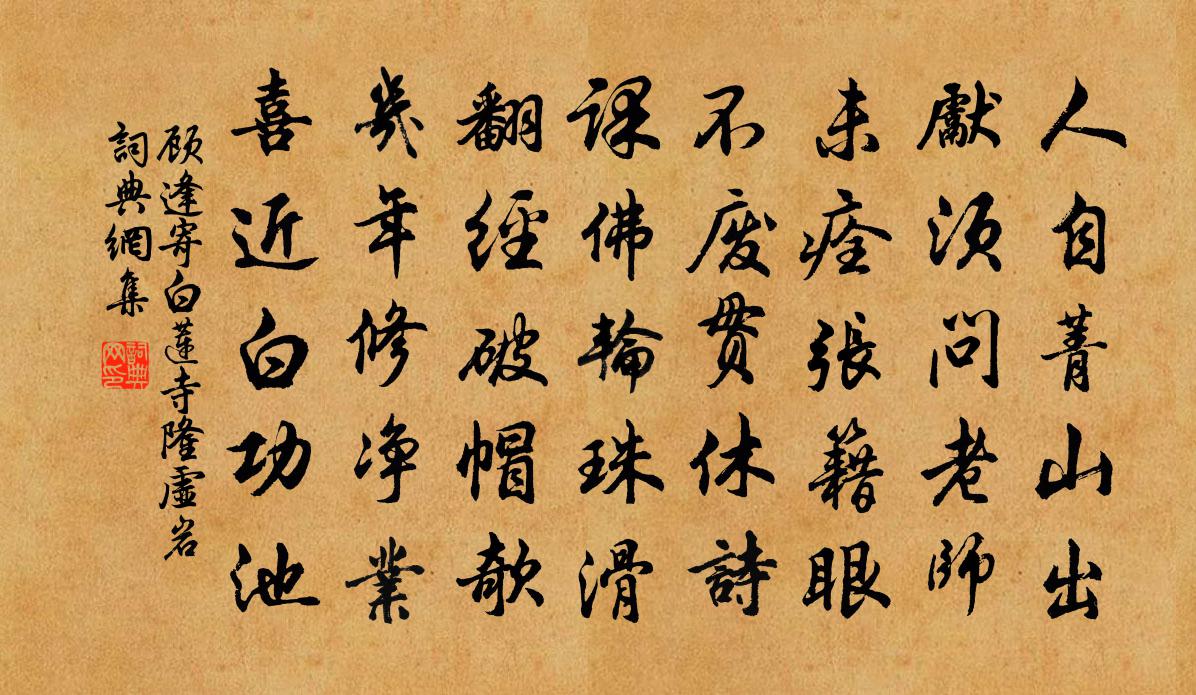 人自菁山出
獻須問老師
未痊張籍眼
不废貫休詩
課佛輪珠滑
翻經破帽欹
幾年修净業
喜近白功池
顾逢寄白蓮寺隆虛岩
詞典網集
詞典网印